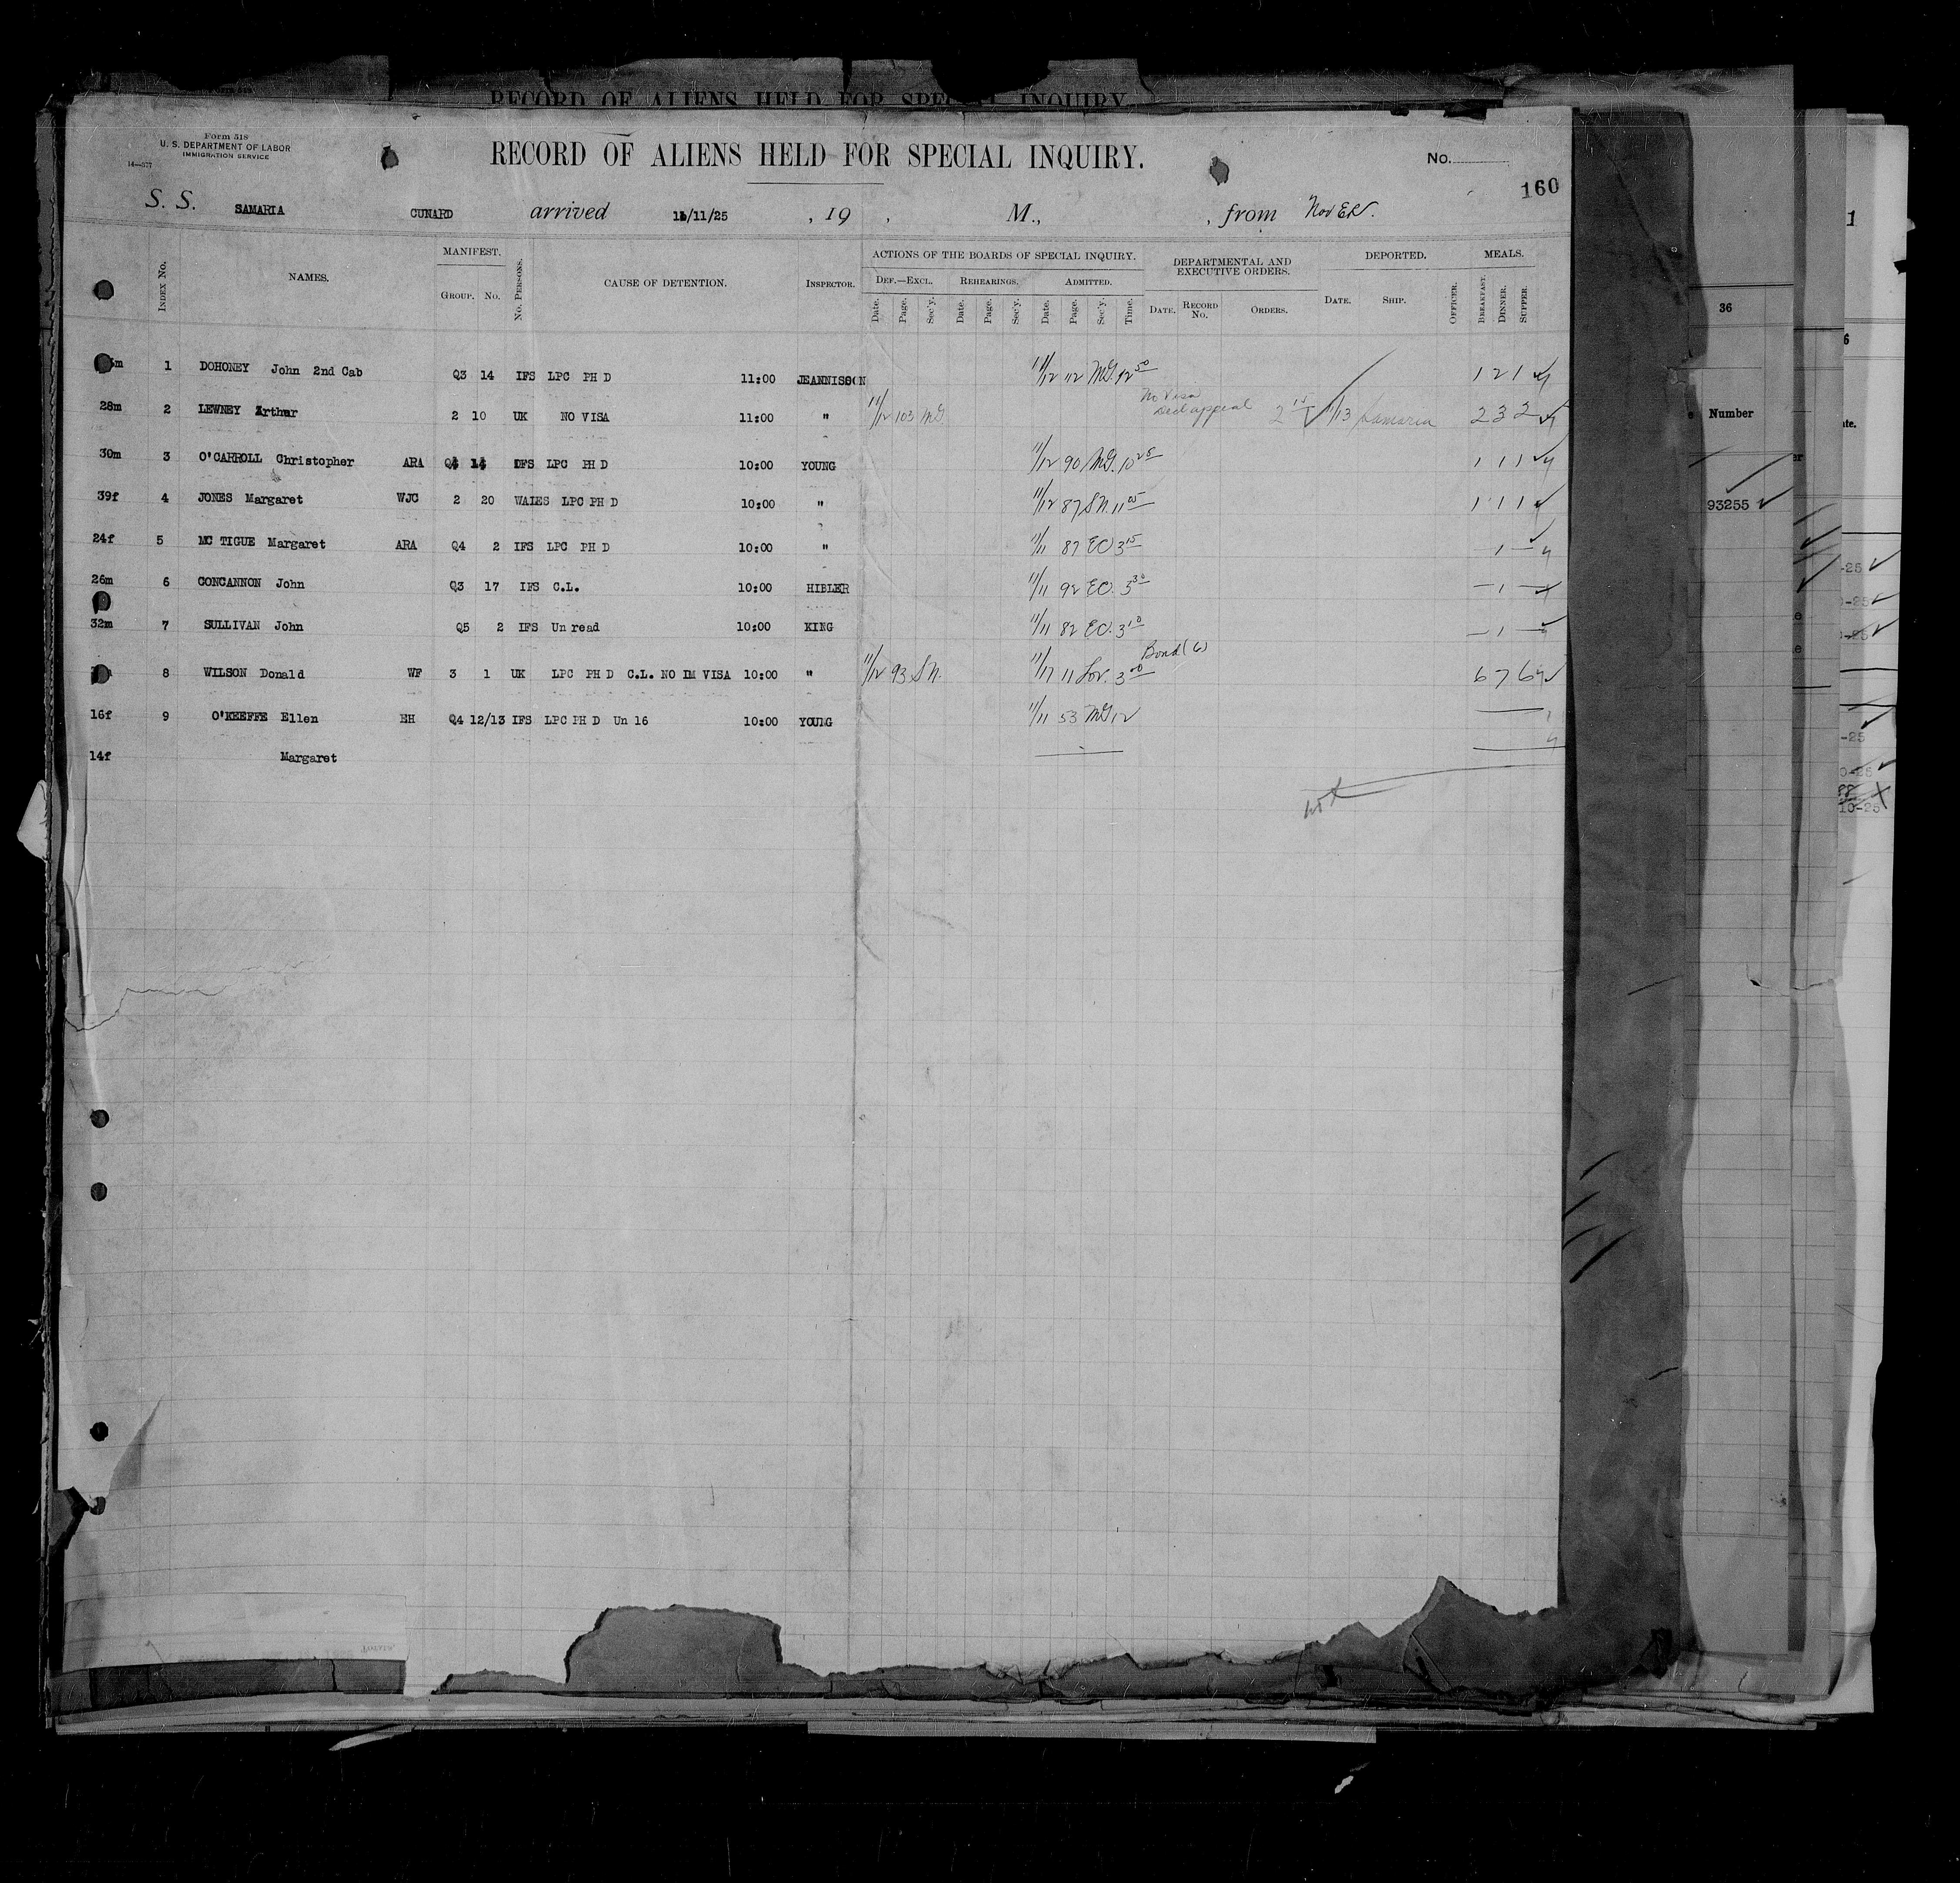 RECORD OF ALIENS HELD FOR SPECIAL INQUIRY.
Form 518
U. S. DEPARTMENT OF LABOR
IMMIGRATION SERVICE
14—377
RECORD OF ALIENS HELD FOR SPECIAL INQUIRY.
No.
160
S. S. SAMARIA CUNARD arrived 11/11/25 , 19 , M., , from
INDEX No. NAMES. MANIFEST. GROUP. No. No. PERSONS. CAUSE OF DETENTION. INSPECTOR. ACTIONS OF THE BOARDS OF SPECIAL INQUIRY. DEPARTMENTAL AND EXECUTIVE ORDERS. DEPORTED. MEALS.
DEF.—EXCL. REHEARINGS. ADMITTED.
Date. Page. Sec'y. Date. Page. Sec'y. Date. Page. Sec'y. Time. DATE. RECORD No. ORDERS. DATE. SHIP. OFFICER. BREAKFAST. DINNER. SUPPER.
m 1 DOHONEY John 2nd Cab Q3 14 IFS LPC PH D 11:00 JEANNISSON 11/12 112 MG. 12 50 1 2 1
28m 2 LEWNEY Arthur 2 10 UK NO VISA 11:00 " 11/12 103 MG. No Visa appeal 2 15 11/13 Samaria 2 3 2
30m 3 O'CARROLL Christopher ARA Q4 14 IFS LPC PH D 10:00 YOUNG 11/12 90 MG. 10 25 1 1 1
39f 4 JONES Margaret WJC 2 20 WALES LPC PH D 10:00 " 11/12 87 SN. 11 05 1 1 1
24f 5 MC TIGUE Margaret ARA Q4 2 IFS LPC PH D 10:00 " 11/11 87 EO 3 15 — 1 —
26m 6 CONCANNON John Q3 17 IFS C.L. 10:00 HIBLER 11/11 92 EO. 3 30 — 1 —
32m 7 SULLIVAN John Q5 2 IFS Un read 10:00 KING 11/11 82 EO. 3 10 — 1 —
8 WILSON Donald WF 3 1 UK LPC PH D C.L. NO IM VISA 10:00 " 11/12 93 SN. 11/17 11 Lov. 3 00 Bond (6) 6 7 6
16f 9 O'KEEFFE Ellen EH Q4 12/13 IFS LPC PH D Un 16 10:00 YOUNG 11/11 53 MG 12
14f Margaret
36
Number
93255